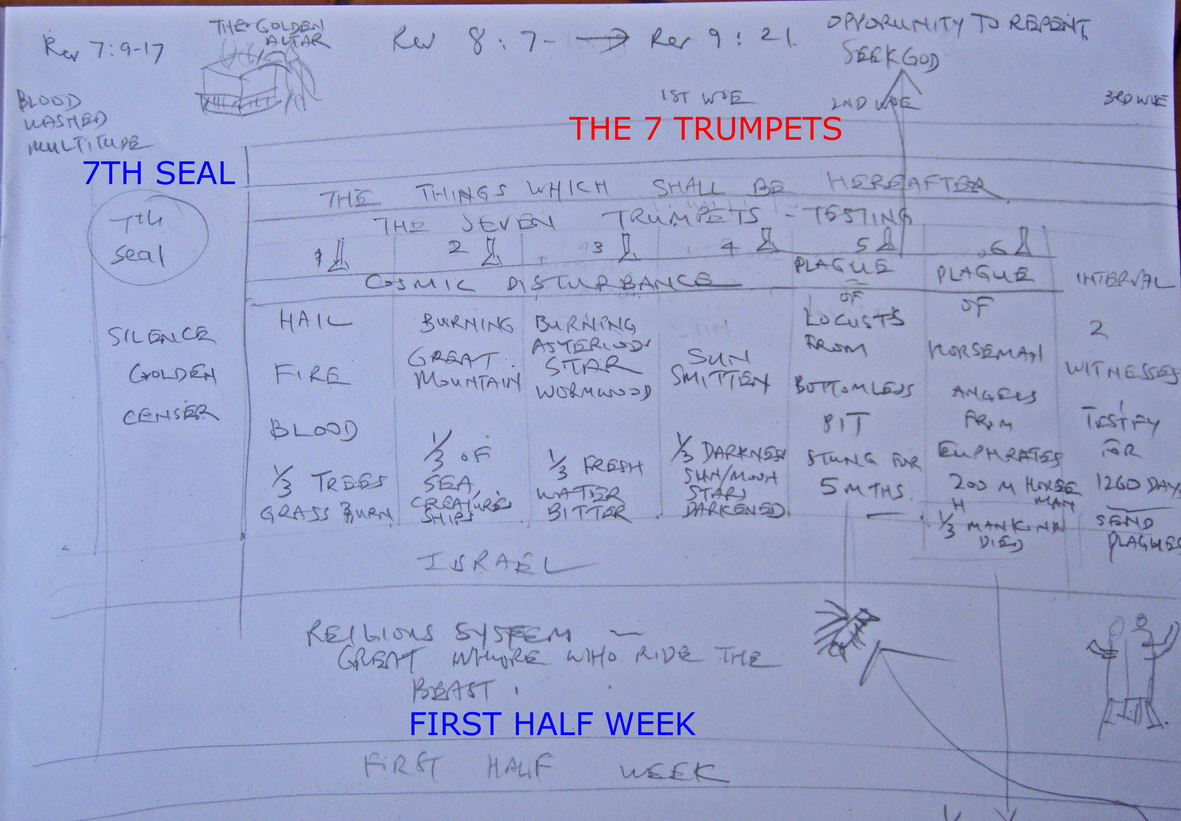 Rev 7:9-17
THE GOLDEN
ALTAR
Rev 8:7- → Rev 9:21.
OPPORUNITY TO REPENT
SEEK GOD
BLOOD
WASHED
MULTITUDE
1ST WOE
2ND WOE
3RD WOE
THE 7 TRUMPETS
7TH SEAL
THE THINGS WHICH SHALL BE HEREAFTER
7th
seal
THE SEVEN TRUMPETS - TESTING
1 2 3 4 5 6
COSMIC DISTURBANCE
SILENCE
GOLDEN
CENSER
HAIL
FIRE
BLOOD
1/3 TREES
GRASS BURN
BURNING
GREAT
MOUNTAIN
1/3 OF
SEA
CREATURES
SHIPS
BURNING
ASTERIOD
STAR
WORMWOOD
1/3 FRESH
WATER
BITTER
SUN
SMITTEN
1/3 DARKNESS
SUN/MOON
STARS
DARKENED
PLAGUE
OF
LOCUSTS
FROM
BOTTOMLESS
PIT
STUNG FOR
5 MTHS.
PLAGUE
OF
HORSEMAN
ANGELS
FROM
EUPHRATES
200 M HORSE
MAN
1/3 MANKIND
DIED
INTERVAL
2
WITNESSES
TESTIFY
FOR
1260 DAYS
SEND
PLAGUES
ISRAEL
RELIGIONS SYSTEM —
GREAT WHORE WHO RIDE THE
BEAST.
FIRST HALF WEEK
FIRST HALF WEEK